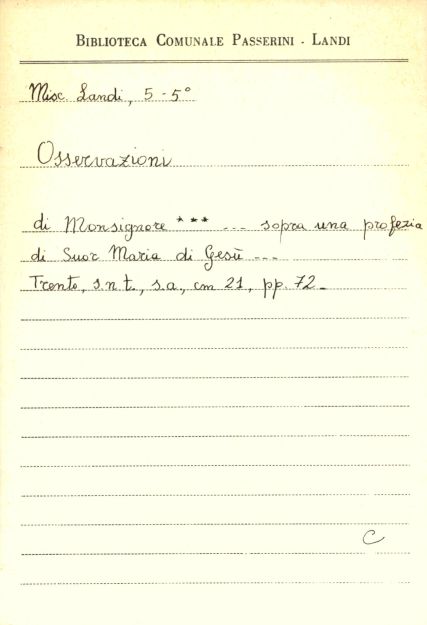 BIBLIOTECA COMUNALE PASSERINI - LANDI
Misc. Landi, 5-5°
Osservazioni
di Monsignore *** --- sopra una profezia
di Suor Maria di Gesù ---
Trento, s.n.t., s.a., cm 21, pp. 72.
C